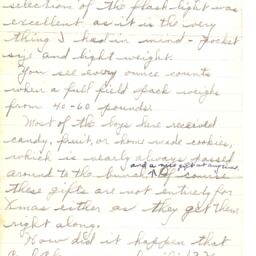 selection of the flash light was
excellent as it is the very
thing I had in mind - pocket
size and light weight.
You see every ounce counts
when a full field pack weighs
from 40-60 pounds.
Most of the boys here received
candy, fruit, or home made cookies,
which is nearly always passed
and a
around to the bunch. Of course
these gifts are not entirely for
Xmas either as they get them
right along.
How did it happen that